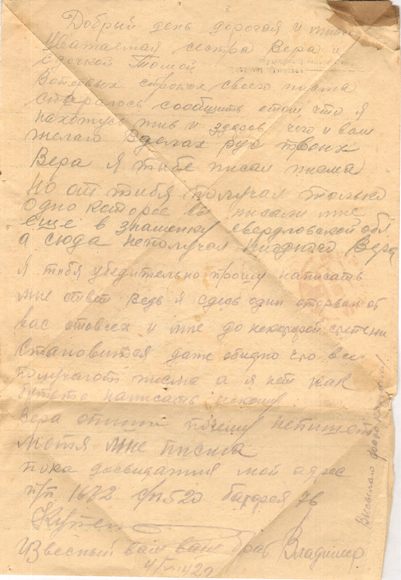 Добрый день дорогая и
Уважаемая сестра Вера и
дочкой Томой
строках своего письма
сообщить о том, что я
нахожусь жив и здоров, чего и вам
желаю в делах
Вера я тибе писал писма
Но от тибя получал только
одно которое писали мне
еще в знаменку свердловской обл
а сюда неполучал Вера
Я тибя убедительно прошу написать
мне ответ ведь я сдесь один оторван от
вас отовсех и мне до некоторой степени
становится даже обидно что все
получают писма а я нет как
написать некому
Вера опиши почему непишет
Мотя мне писма
пока досвидания мой адрес
п/п 1672 батарея
Извесный вам ваш брат Владимер
42г
Высылаю